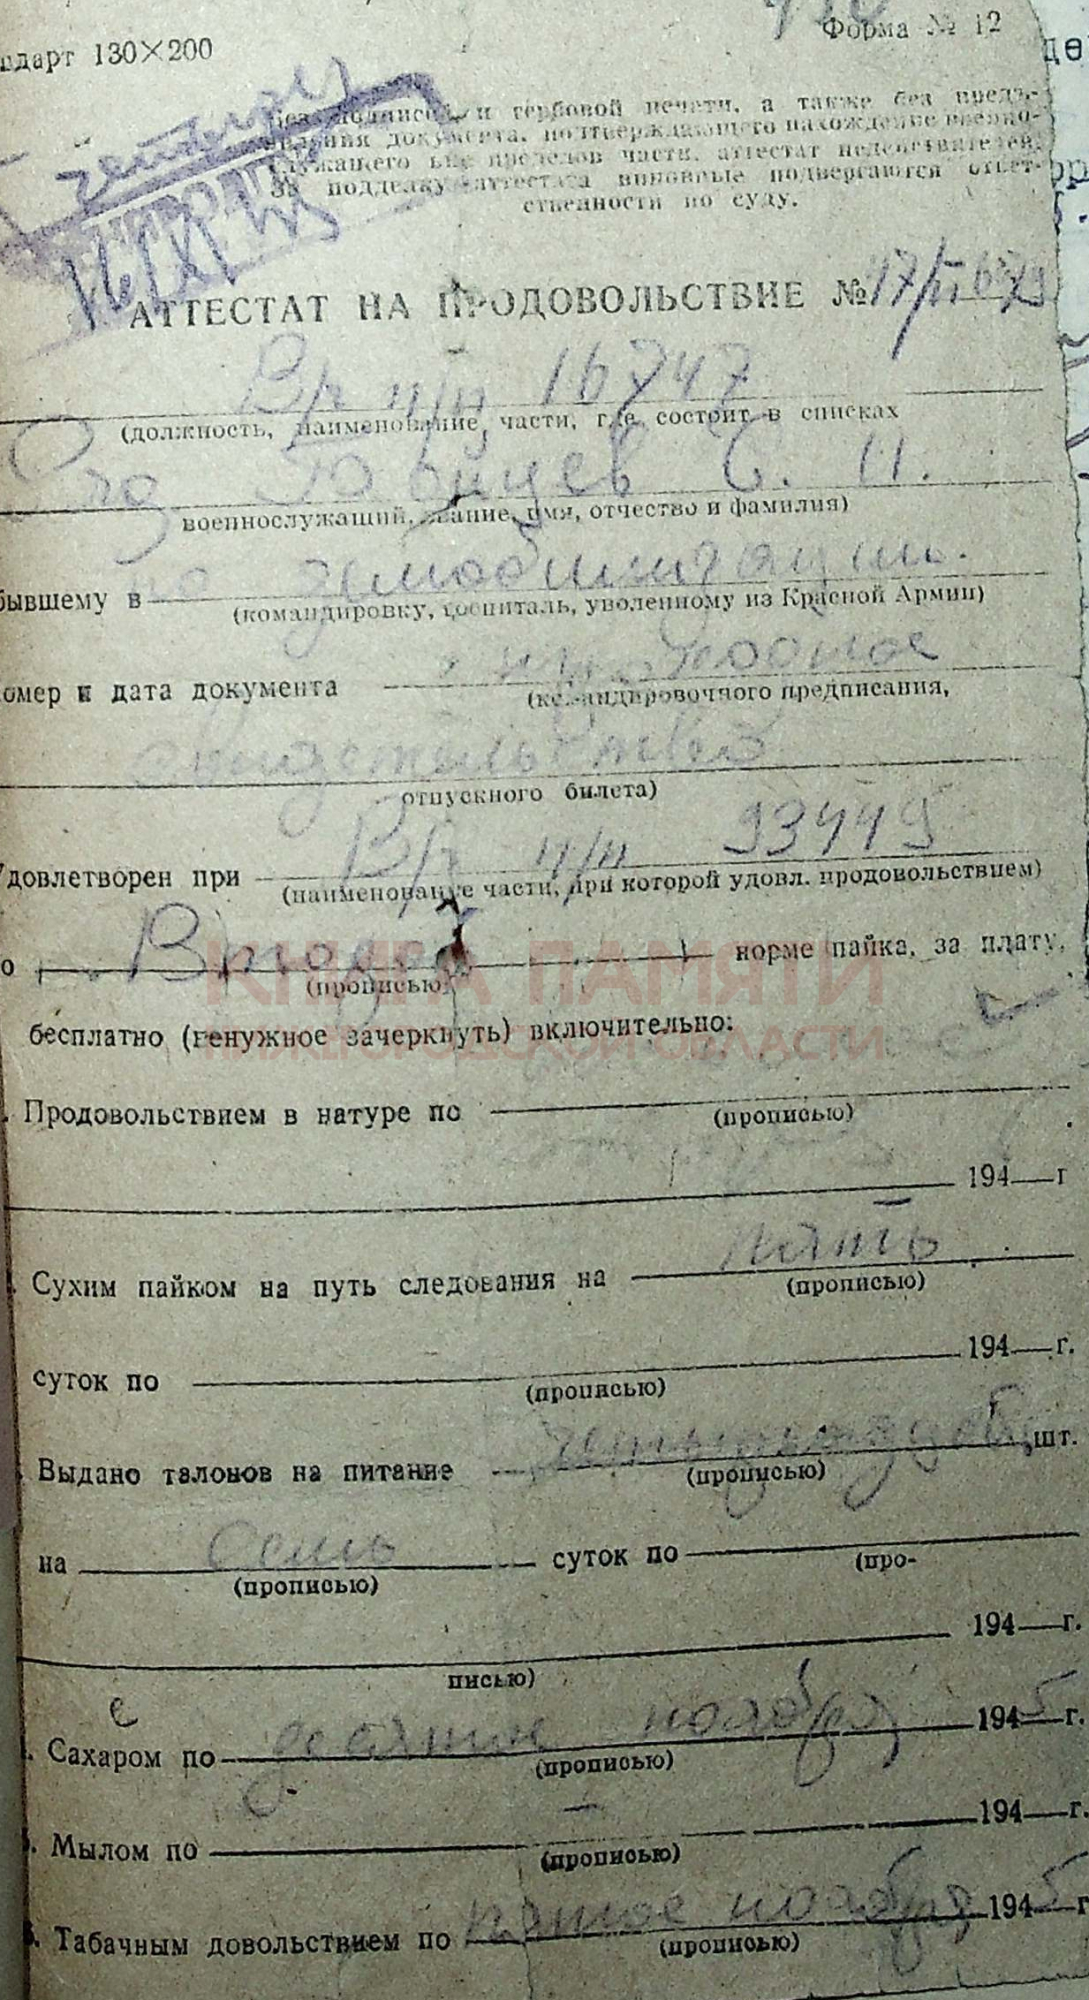 ндарт 130×200
Форма № 12
Без подписей и гербовой печати, а также без предъ-
явления документа, подтверждающего нахождение военно-
служащего вне пределов части, аттестат недействителен.
За подделку аттестата виновные подвергаются ответ-
ственности по суду.
АТТЕСТАТ НА ПРОДОВОЛЬСТВИЕ №
В/ч п/п 16747
(должность, наименование части, где состоит в списках
С. И.
военнослужащий, звание, имя, отчество и фамилия)
бывшему в по демобилизации.
(командировку, госпиталь, уволенному из Красной Армии)
омер и дата документа проездное
(командировочного предписания,
свидетельство
отпускного билета)
Удовлетворен при В/ч п/п 93449
(наименование части, при которой удовл. продовольствием)
о норме пайка, за плату,
(прописью)
КНИГА ПАМЯТИ
бесплатно (ненужное зачеркнуть) включительно:
НИЖЕГОРОДСКОЙ ОБЛАСТИ
. Продовольствием в натуре по
(прописью)
194 г
. Сухим пайком на путь следования на пять
(прописью)
суток по 194 г.
(прописью)
. Выдано талонов на питание шт.
(прописью)
на семь суток по
(прописью) (про-
194 г.
писью)
. Сахаром по десятое ноября 1945 г.
(прописью)
. Мылом по — 194 г.
(прописью)
. Табачным довольствием по пятое ноября 1945 г
(прописью)